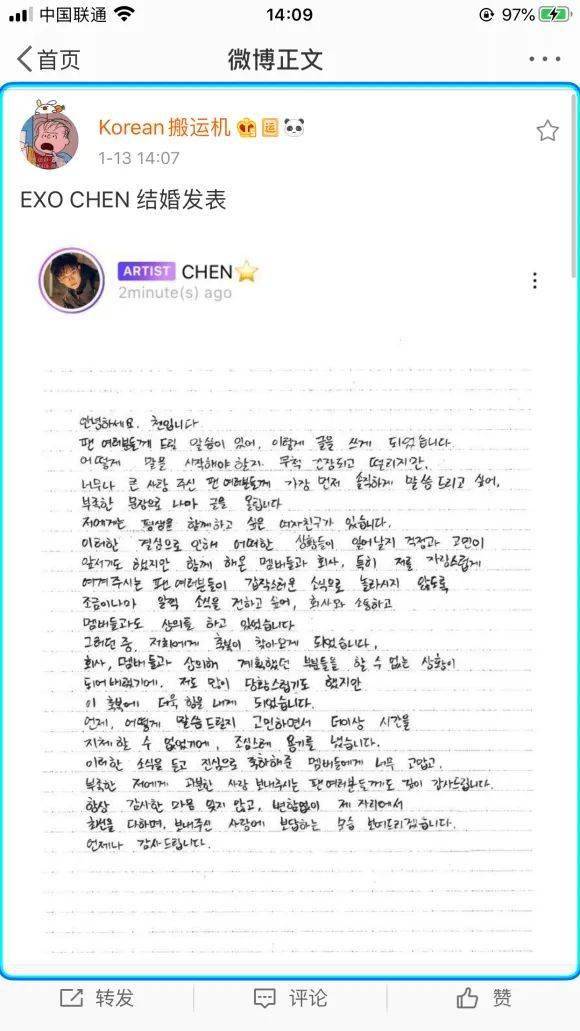 中国联通
14:09
97%
首页
微博正文
Korean搬运机
运
1-13 14:07
EXO CHEN 结婚发表
ARTIST CHEN
2minute(s) ago
안녕하세요, 첸입니다
팬 여러분들께 드릴 말씀이 있어, 이렇게 글을 쓰게 되었습니다.
어떻게 말을 시작해야 할지 무척 긴장되고 떨리지만,
너무나 큰 사랑 주신 팬 여러분들께 가장 먼저 솔직하게 말씀드리고 싶어,
부족한 문장으로 나마 글을 올립니다
저에게는 평생을 함께하고 싶은 여자친구가 있습니다.
이러한 결심으로 인해 어떠한 상황들이 일어날지 걱정과 고민이
앞서기도 했지만 함께 해온 멤버들과 회사, 특히 저를 자랑스럽게
여겨주시는 팬 여러분들이 갑작스러운 소식으로 놀라시지 않도록
조금이나마 일찍 소식을 전하고 싶어, 회사와 소통하고
멤버들과도 상의를 하고 있었습니다
그러던 중, 저희에게 축복이 찾아오게 되었습니다.
회사, 멤버들과 상의해 계획했던 부분들을 할 수 없는 상황이
되어버렸기에, 저도 많이 당황스럽기도 했지만
이 축복에 더욱 힘을 내게 되었습니다.
언제, 어떻게 말씀드릴지 고민하면서 더이상 시간을
지체할 수 없었기에, 조심스레 용기를 냈습니다.
이러한 소식을 듣고 진심으로 축하해준 멤버들에게 너무 고맙고,
부족한 저에게 과분한 사랑 보내주시는 팬 여러분들께도 깊이 감사드립니다.
항상 감사한 마음 잊지 않고, 변함없이 제 자리에서
최선을 다하며, 보내주신 사랑에 보답하는 모습 보여드리겠습니다.
언제나 감사드립니다.
转发
评论
赞